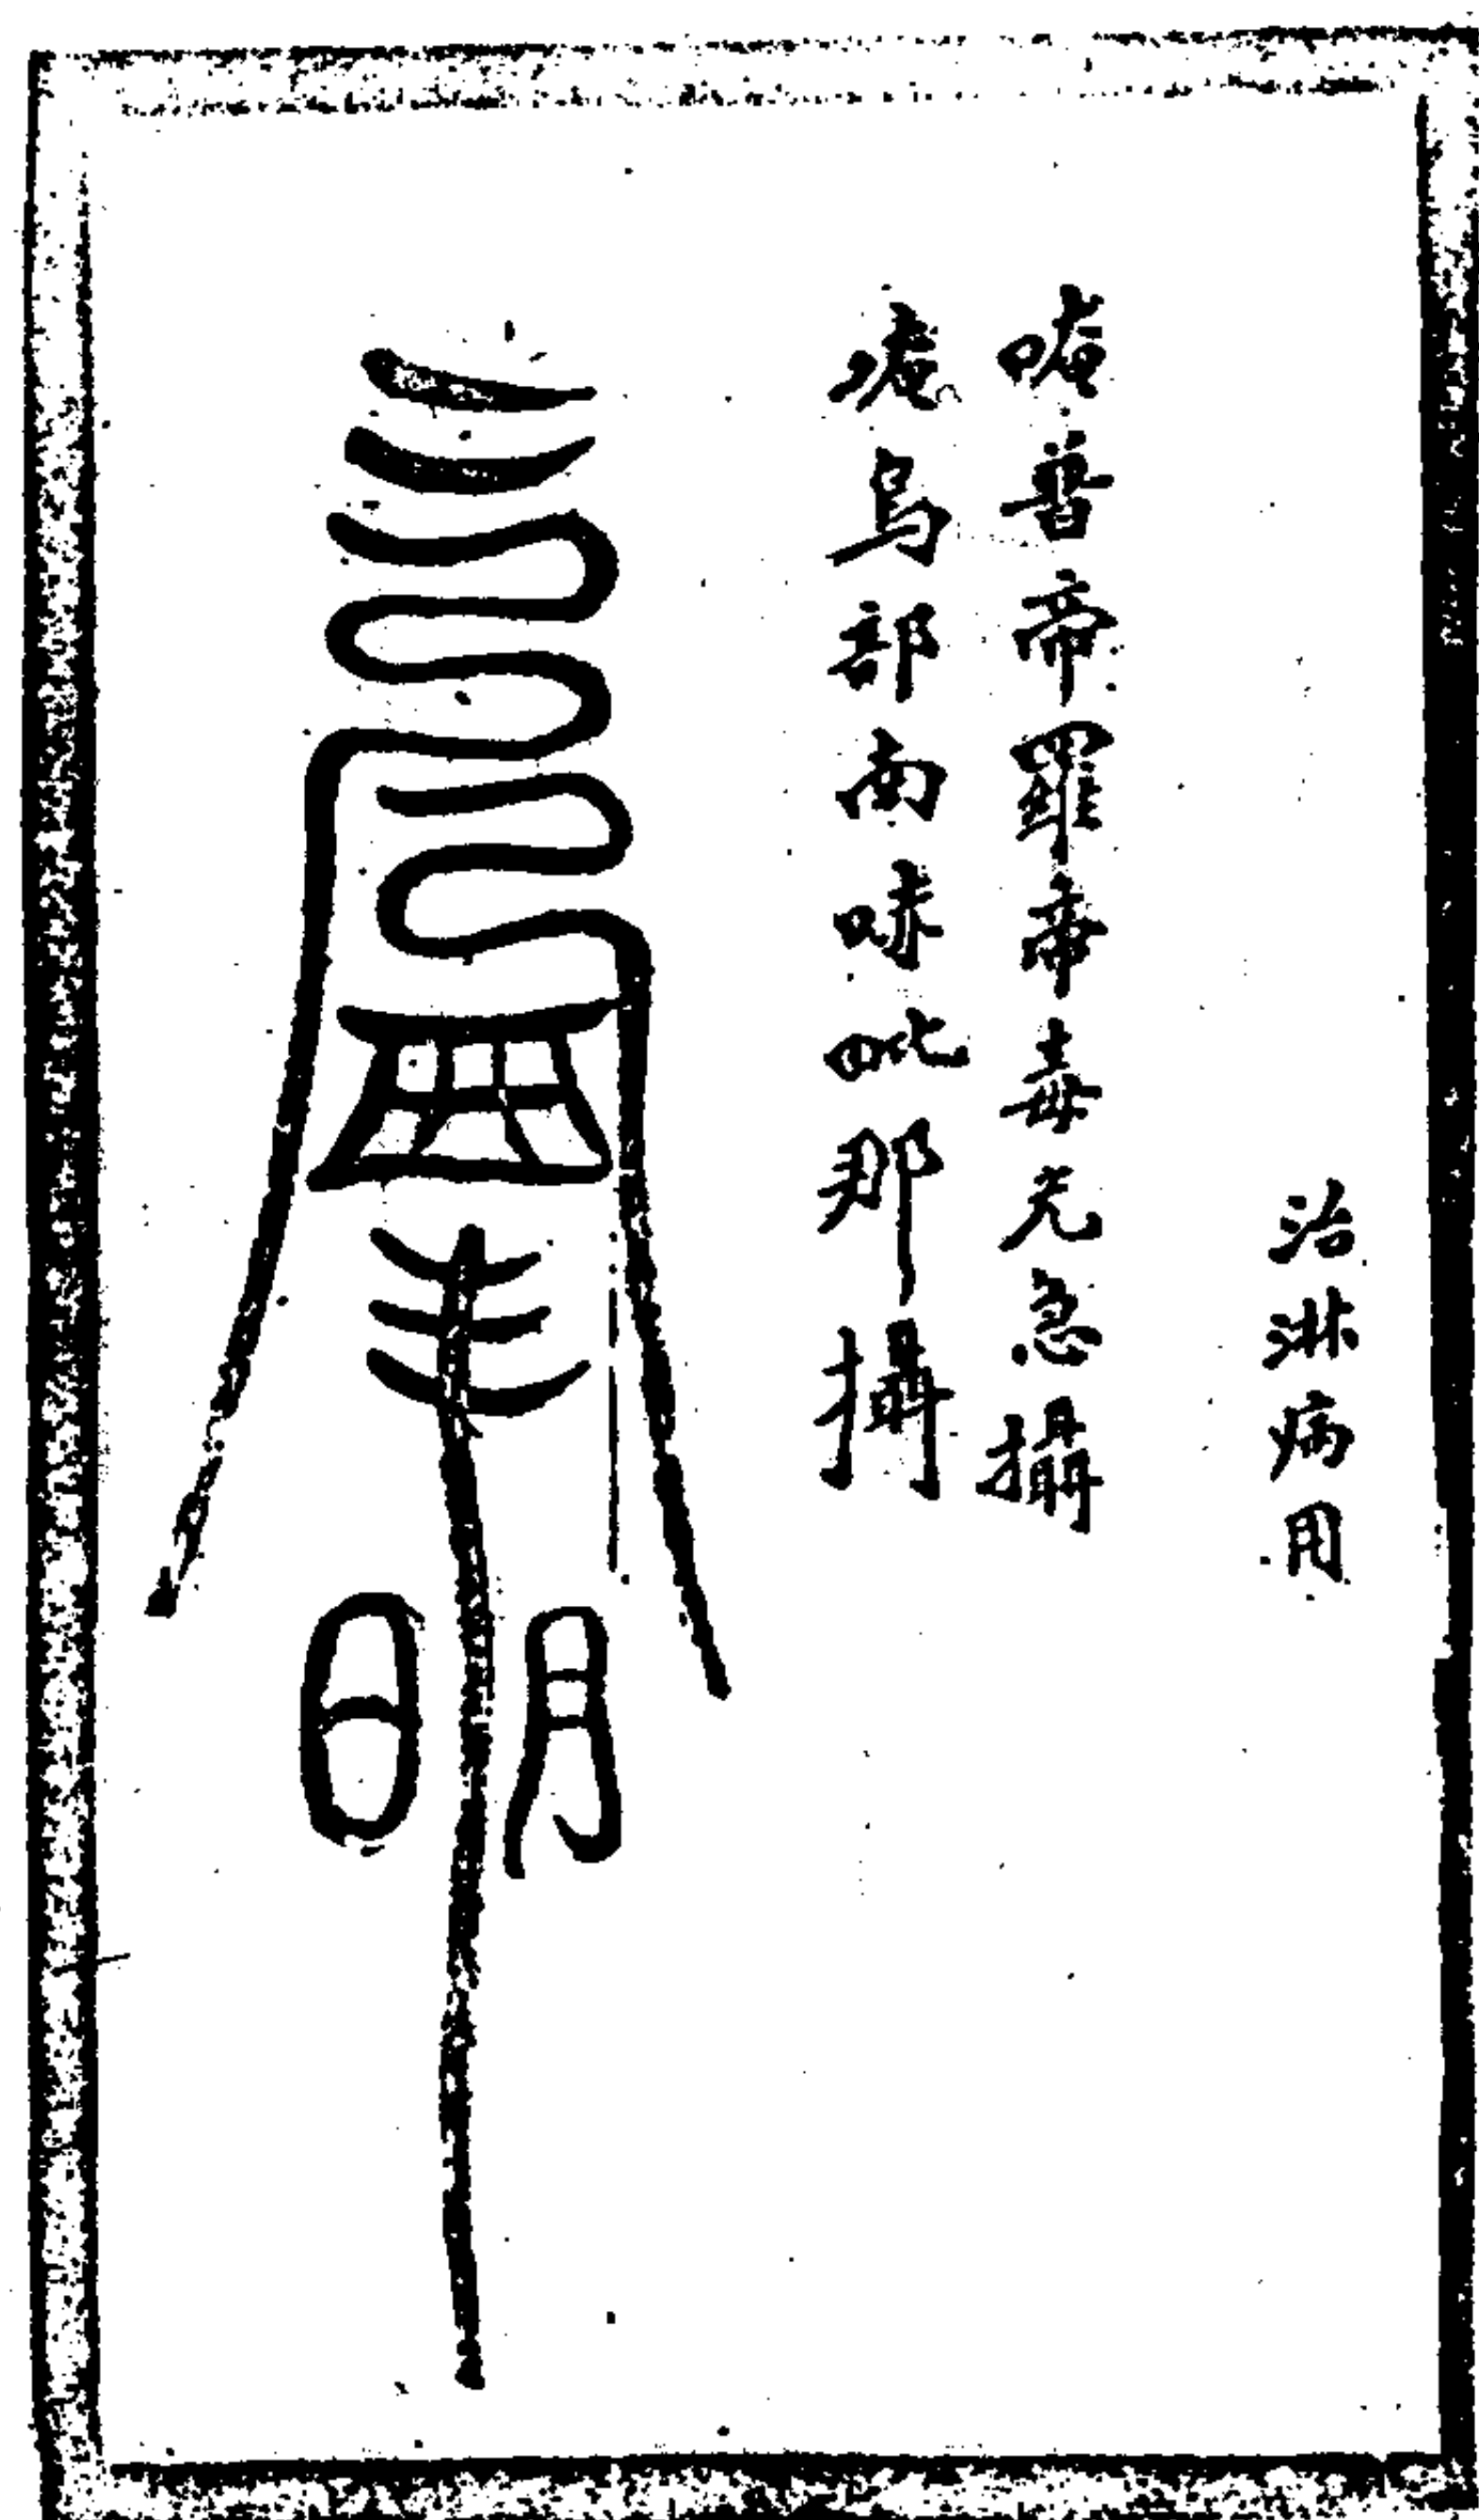 治淋病用
唵普帝羅帝毒元急攝
唵烏部而味吡那攝
日月